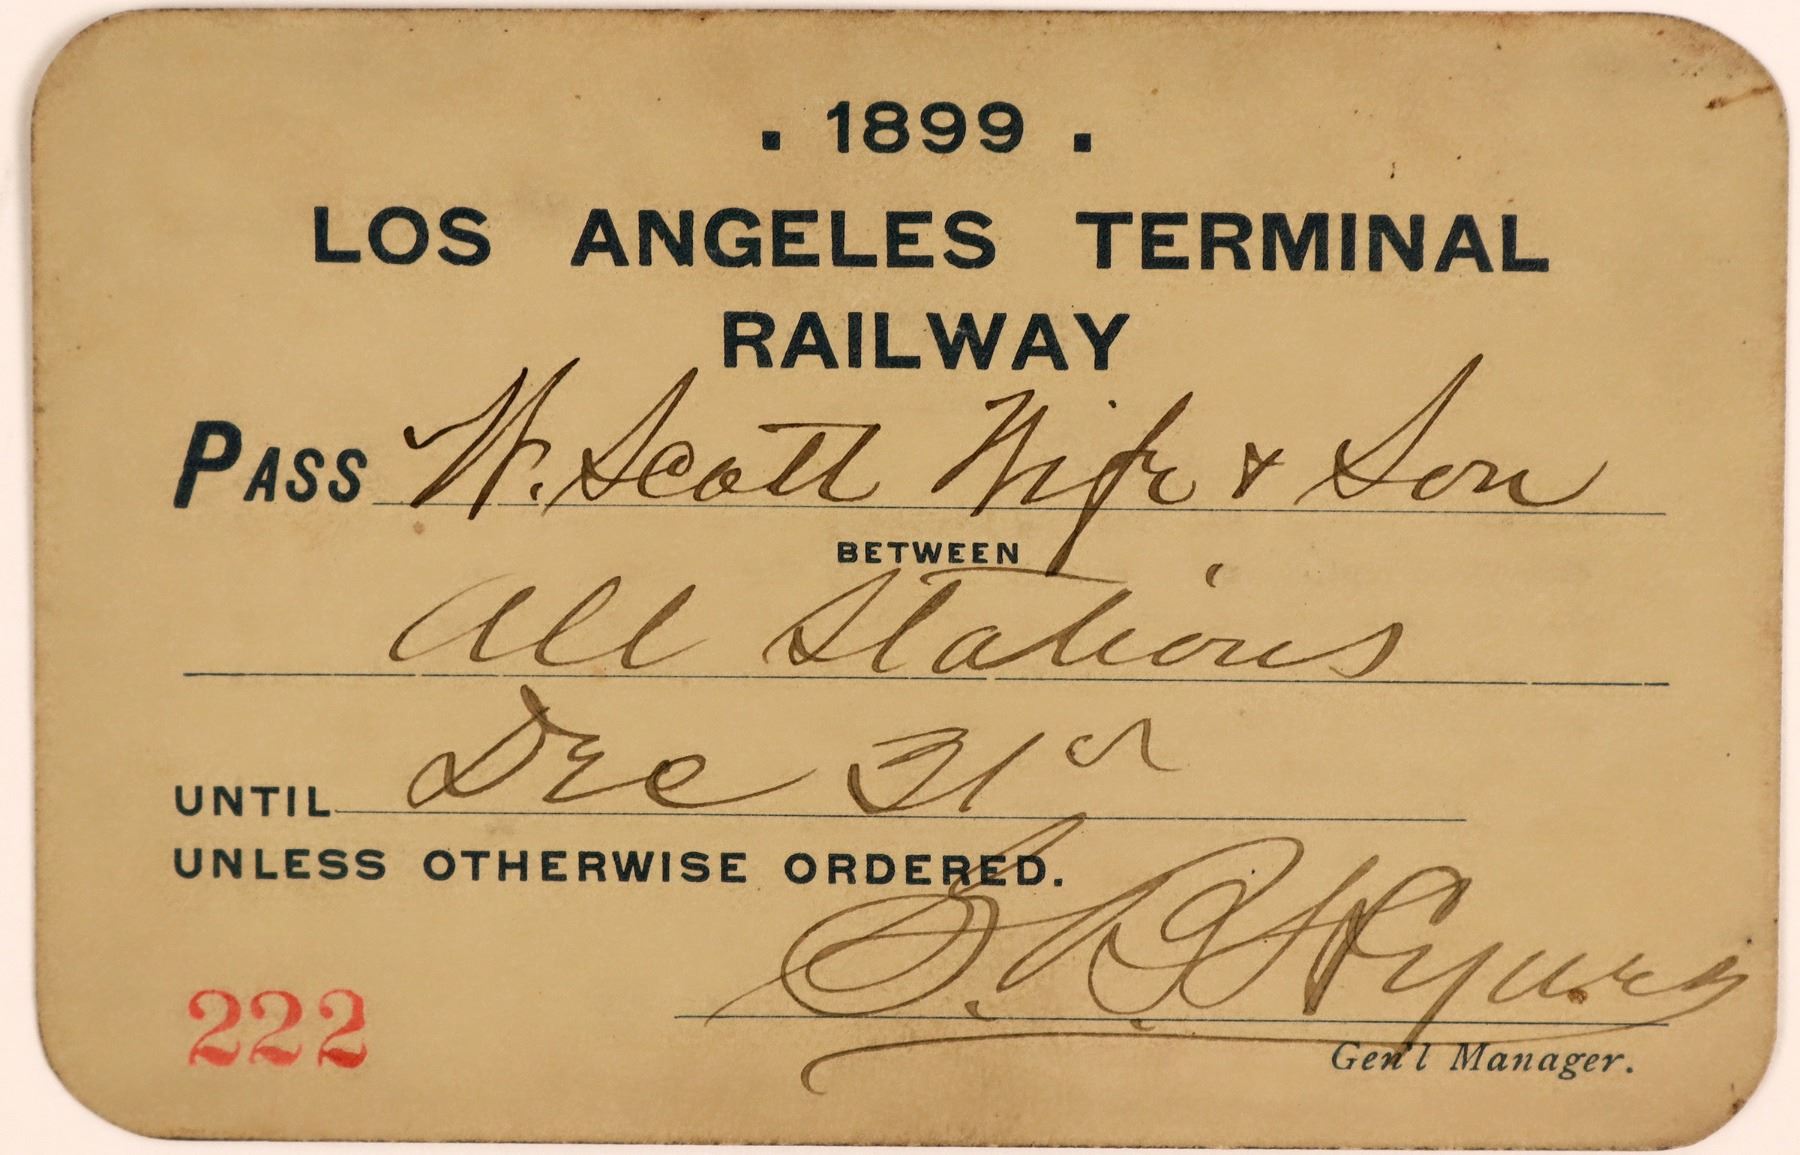 . 1899 .
LOS ANGELES TERMINAL
RAILWAY
PASS W. Scott Wife & Son
BETWEEN
All Stations
UNTIL Dec 31st
UNLESS OTHERWISE ORDERED.
222
Gen'l Manager.